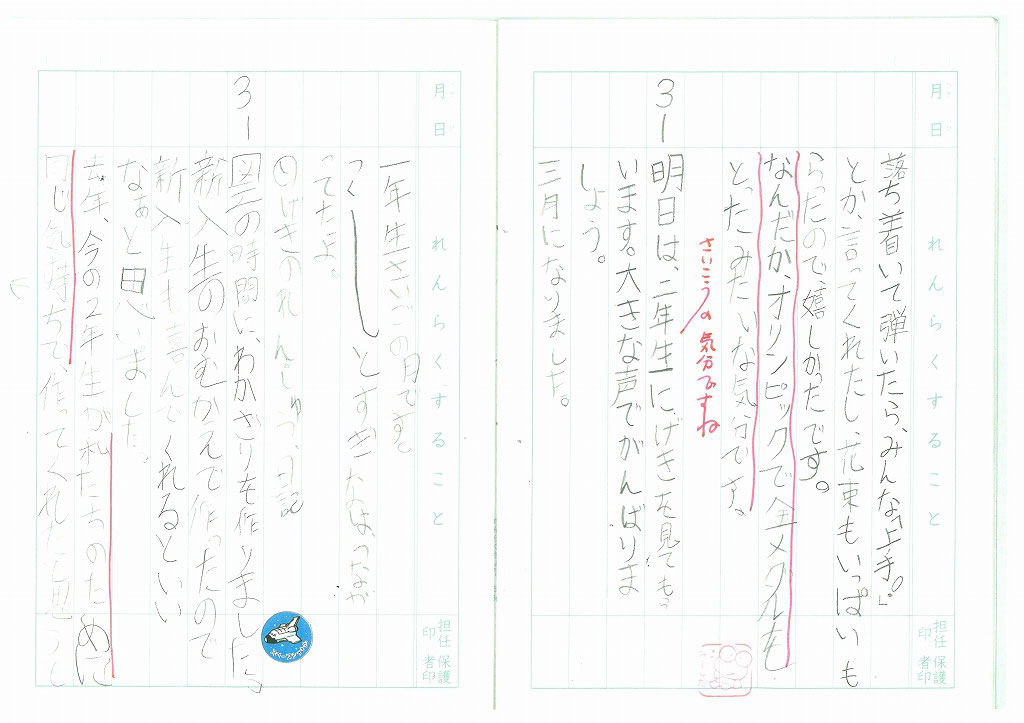 月 日
れんらくすること
落ち着いて弾いたら、みんな「上手。」
とか、言ってくれたし、花束もいっぱいも
らったので、嬉しかったです。
なんだか、オリンピックで金メダルを
とったみたいな気分です。
さいこうの気分ですね
3 1
明日は、二年生に、げきを見てもら
います。大きな声でがんばりま
しょう。
三月になりました。
担任印
保護者印
月 日
れんらくすること
一年生さいごの月です。
つくしとすぎな
ってたよ。
㊐げきのれんしゅう、日記
3 1
図工の時間に、わかざりを作りました。
新入生のおむかえで作ったので
新入生も喜んでくれるといい
なぁと思いました。
去年、今の2年生が私たちのために
同じ気持ちで、作ってくれたと思うし
担任印
保護者印